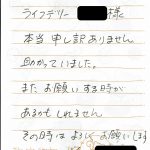 ライフデリー 様
本当 申し訳ありません
助かっていました。
また お願いする時が
あるかもしれません
その時は よろしくお願いします